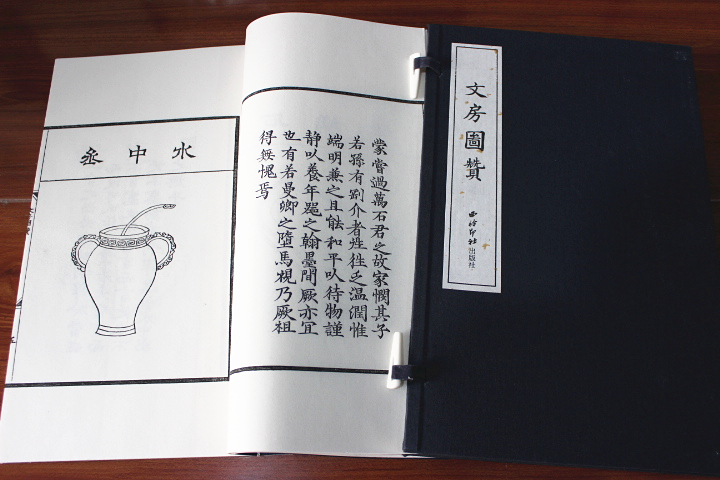 文房圖贊
西泠印社出版社
蒙嘗過萬石君之故家憫其子
若孫有劌介者徃徃乏温潤惟
端明兼之且能和平以待物謹
静以養年置之翰墨間厥亦宜
也有若曼卿之墮馬視乃厥祖
得無愧焉
水中丞